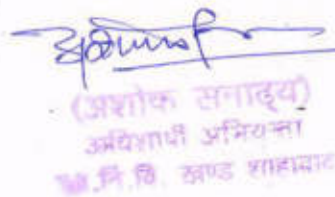 (अशोक सनाढ्य)
अधिशाषी अभियन्ता
सा.नि.वि. खण्ड शाहाबाद